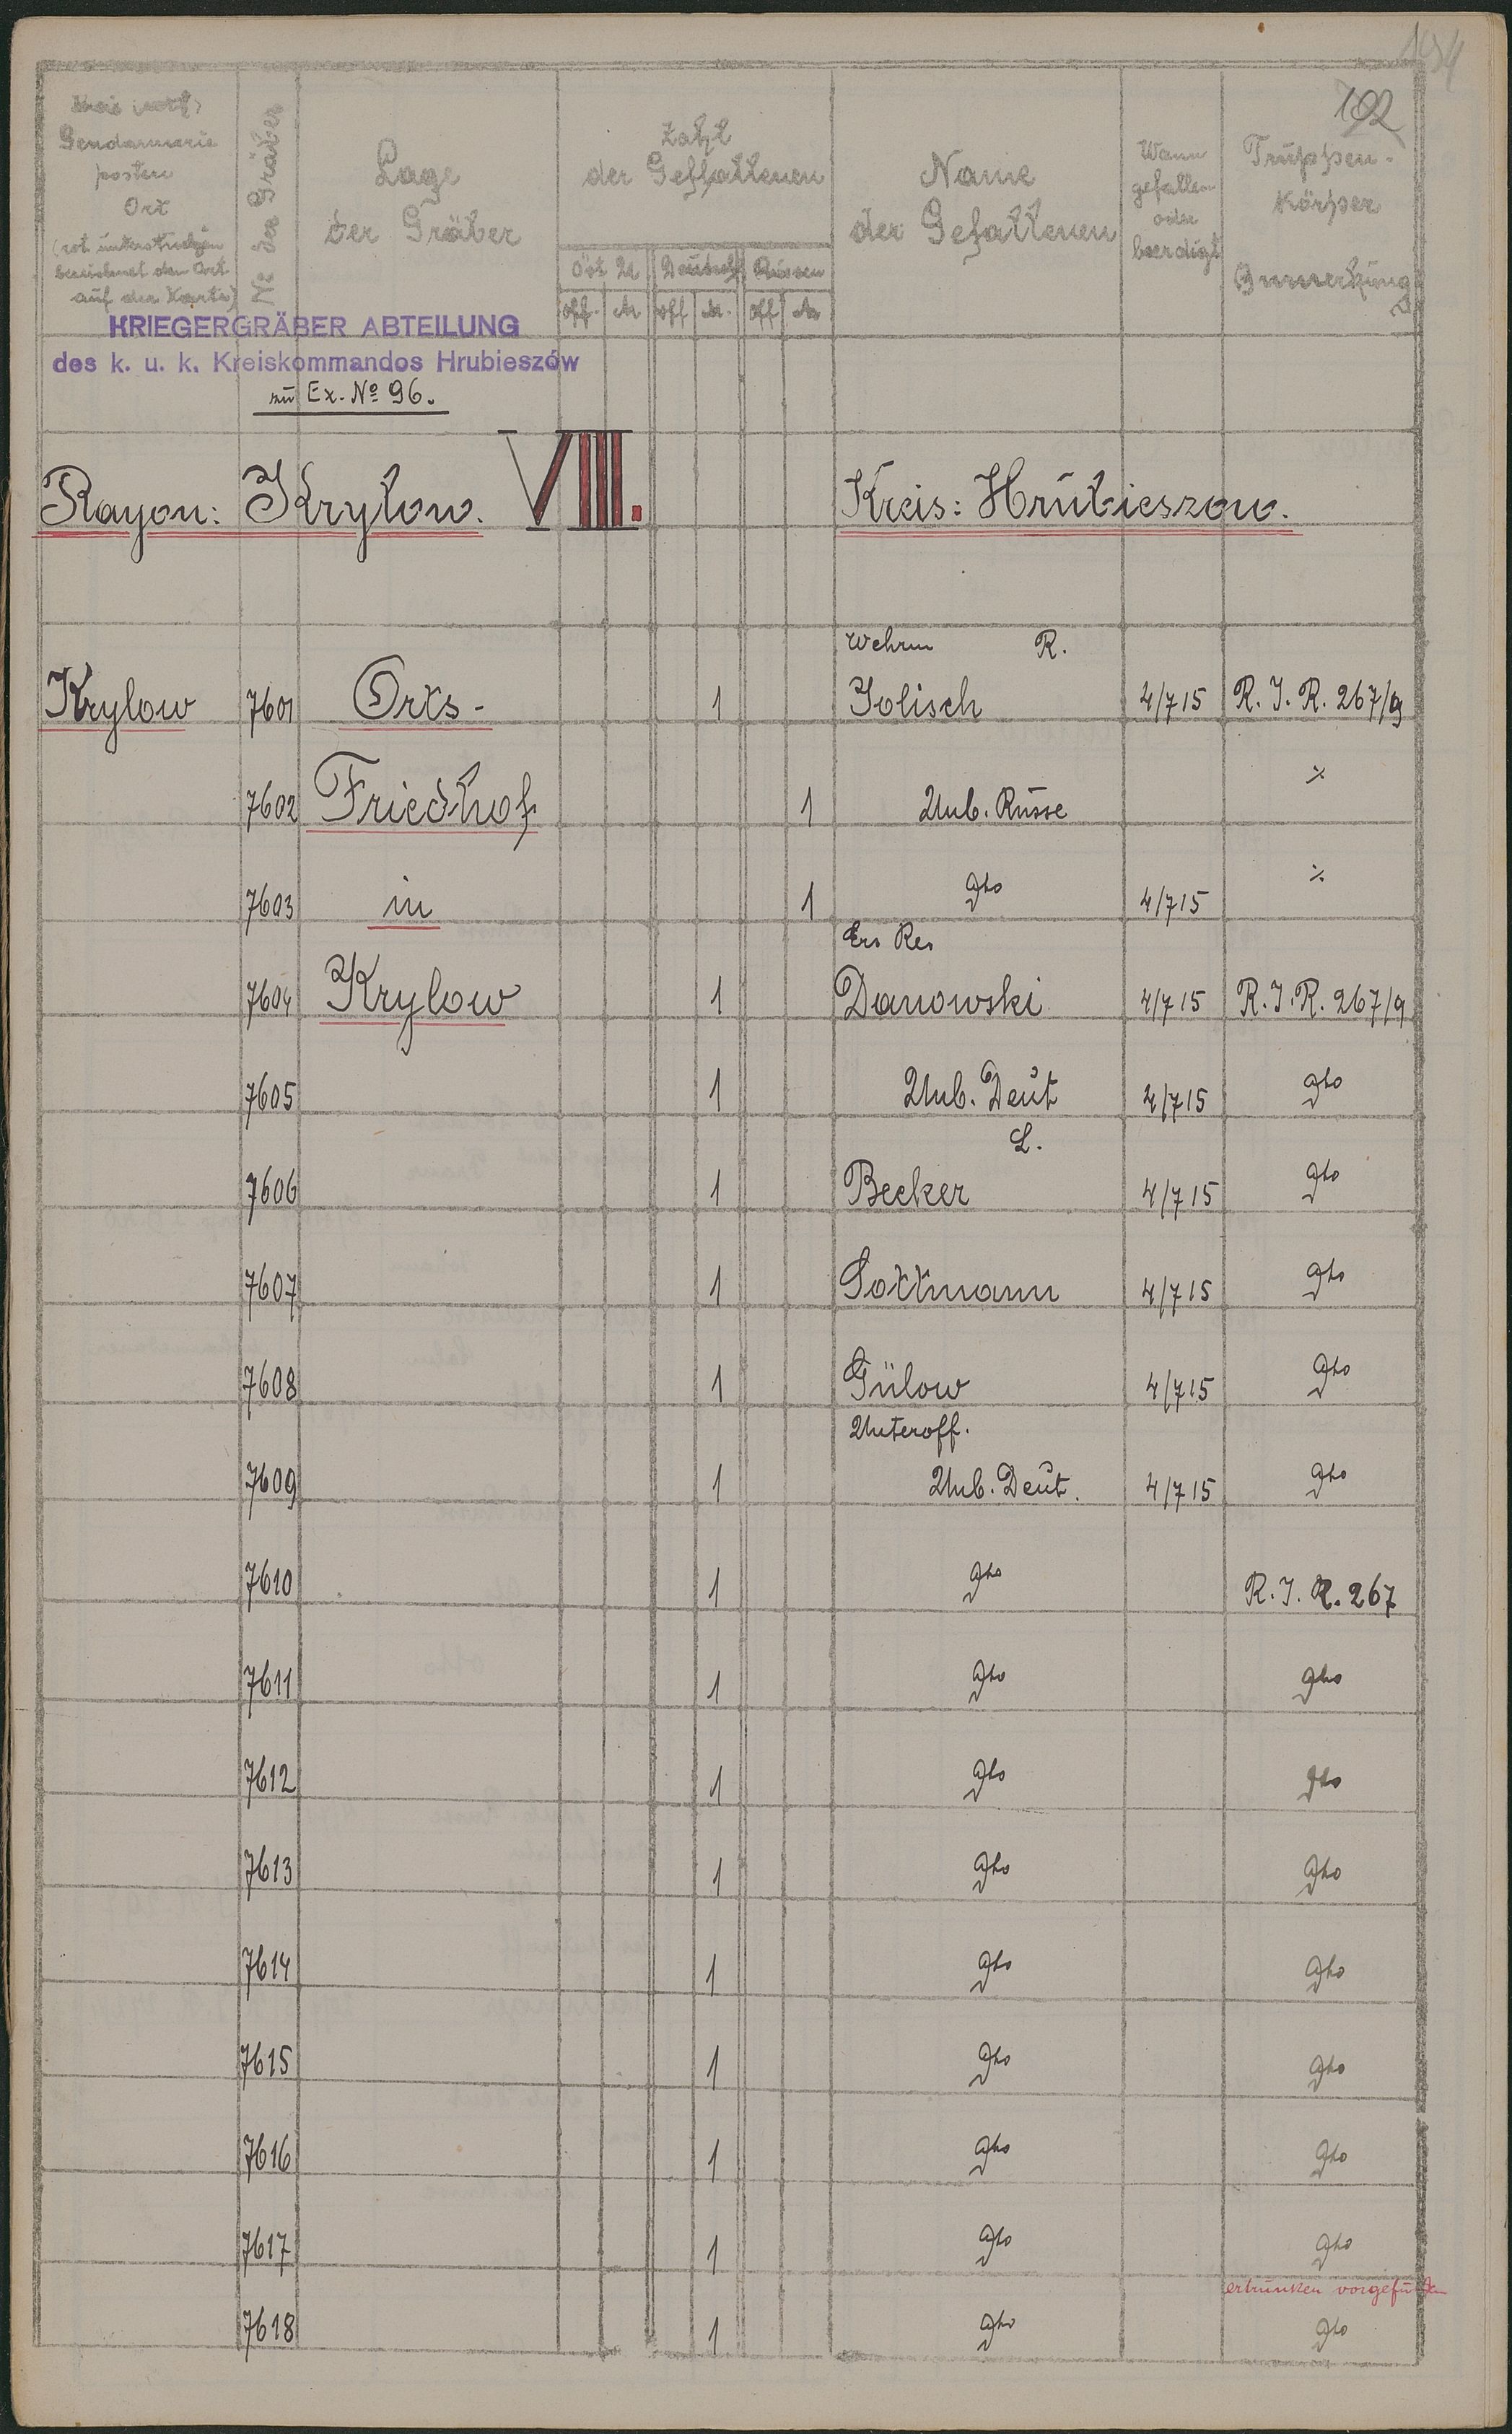 194
192
Gendarmerie
posten
Ort
(rot unterstrichen
bezeichnet den Ort
auf der Karte)
№ der Gräber
Lage
der Gräber
Zahl
der Gefallenen
Öst U Deutsch Russen
Off. M Off M. Off M
Name
der Gefallenen
Wann
gefallen
oder
beerdigt
Truppen-
körper
Anmerkung
KRIEGERGRÄBER ABTEILUNG
des k. u. k. Kreiskommandos Hrubieszów
zu Ex. Nº 96.
Rayon: Krylow. VIII. Kreis: Hrubieszow.
Wehrm R.
Krylow 7601 Orts- 1 Jolisch 4/7 15 R. J. R. 267/9
7602 Friedhof 1 Unb. Russe ⁒
7603 in 1 dto 4/7 15 ⁒
Ers Res
7604 Krylow 1 Danowski 4/7 15 R. J. R. 267/9
7605 1 Unb. Deut 4/7 15 dto
L.
7606 1 Becker 4/7 15 dto
7607 1 Pottmann 4/7 15 dto
7608 1 Gülow 4/7 15 dto
Unteroff.
7609 1 Unb. Deut. 4/7 15 dto
7610 1 dto R. J. R. 267
7611 1 dto dto
7612 1 dto dto
7613 1 dto dto
7614 1 dto dto
7615 1 dto dto
7616 1 dto dto
7617 1 dto dto
ertrunken vorgefunden
7618 1 dto dto